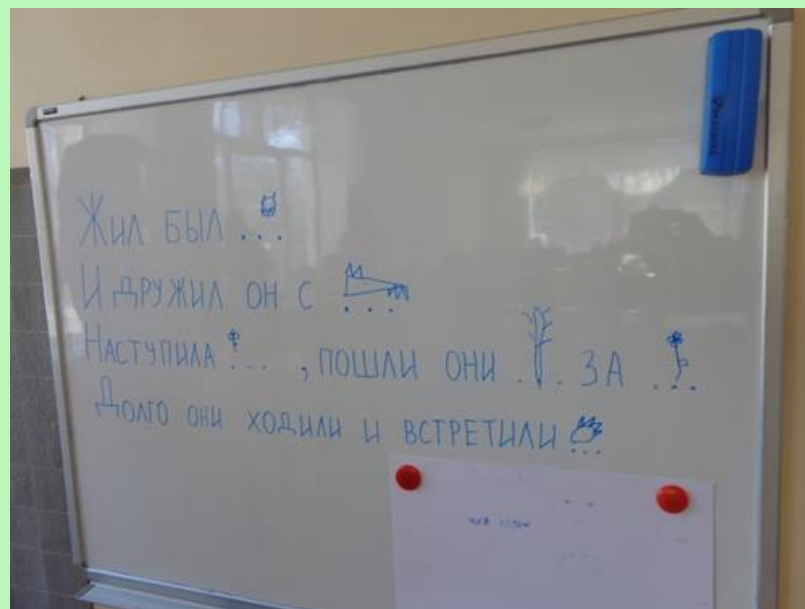 Жил был ...
И дружил он с ...
Наступила ... , пошли они ... за ...
Долго они ходили и встретили ...